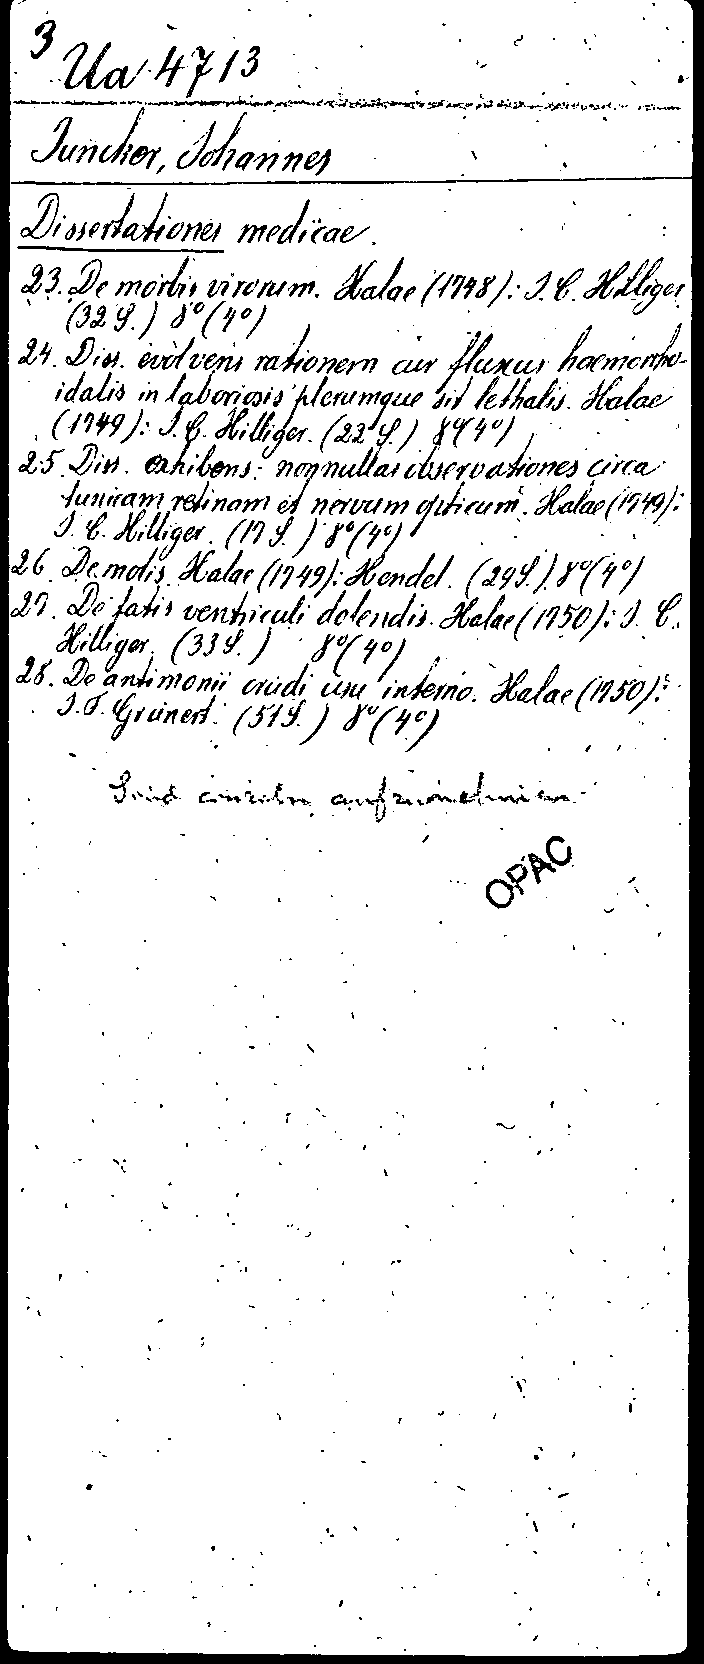 3
Ua 4713
Juncker, Johannes
Dissertationes medicae.
23. De morbis virorum. Halae (1748): J. C. Hilliger
(32 S.) 8° (4°)
24. Diss. evolvens rationem cur fluxus haemorrho-
idalis in laboriosis plerumque sit lethalis. Halae
(1749): J. C. Hilliger. (22 S.) 8° (4°)
25. Diss. exhibens: nonnullas observationes circa
tunicam retinam et nervum opticum. Halae (1749):
J. C. Hilliger. (17 S.) 8° (4°)
26. De molis. Halae (1749): Hendel. (29 S.) 8° (4°)
27. De fatis ventriculi dolendis. Halae (1750): J. C.
Hilliger. (33 S.) 8° (4°)
28. De antimonii crudi usu interno. Halae (1750):
J. F. Grunert. (51 S.) 8° (4°)
Sind einzeln aufzunehmen
OPAC